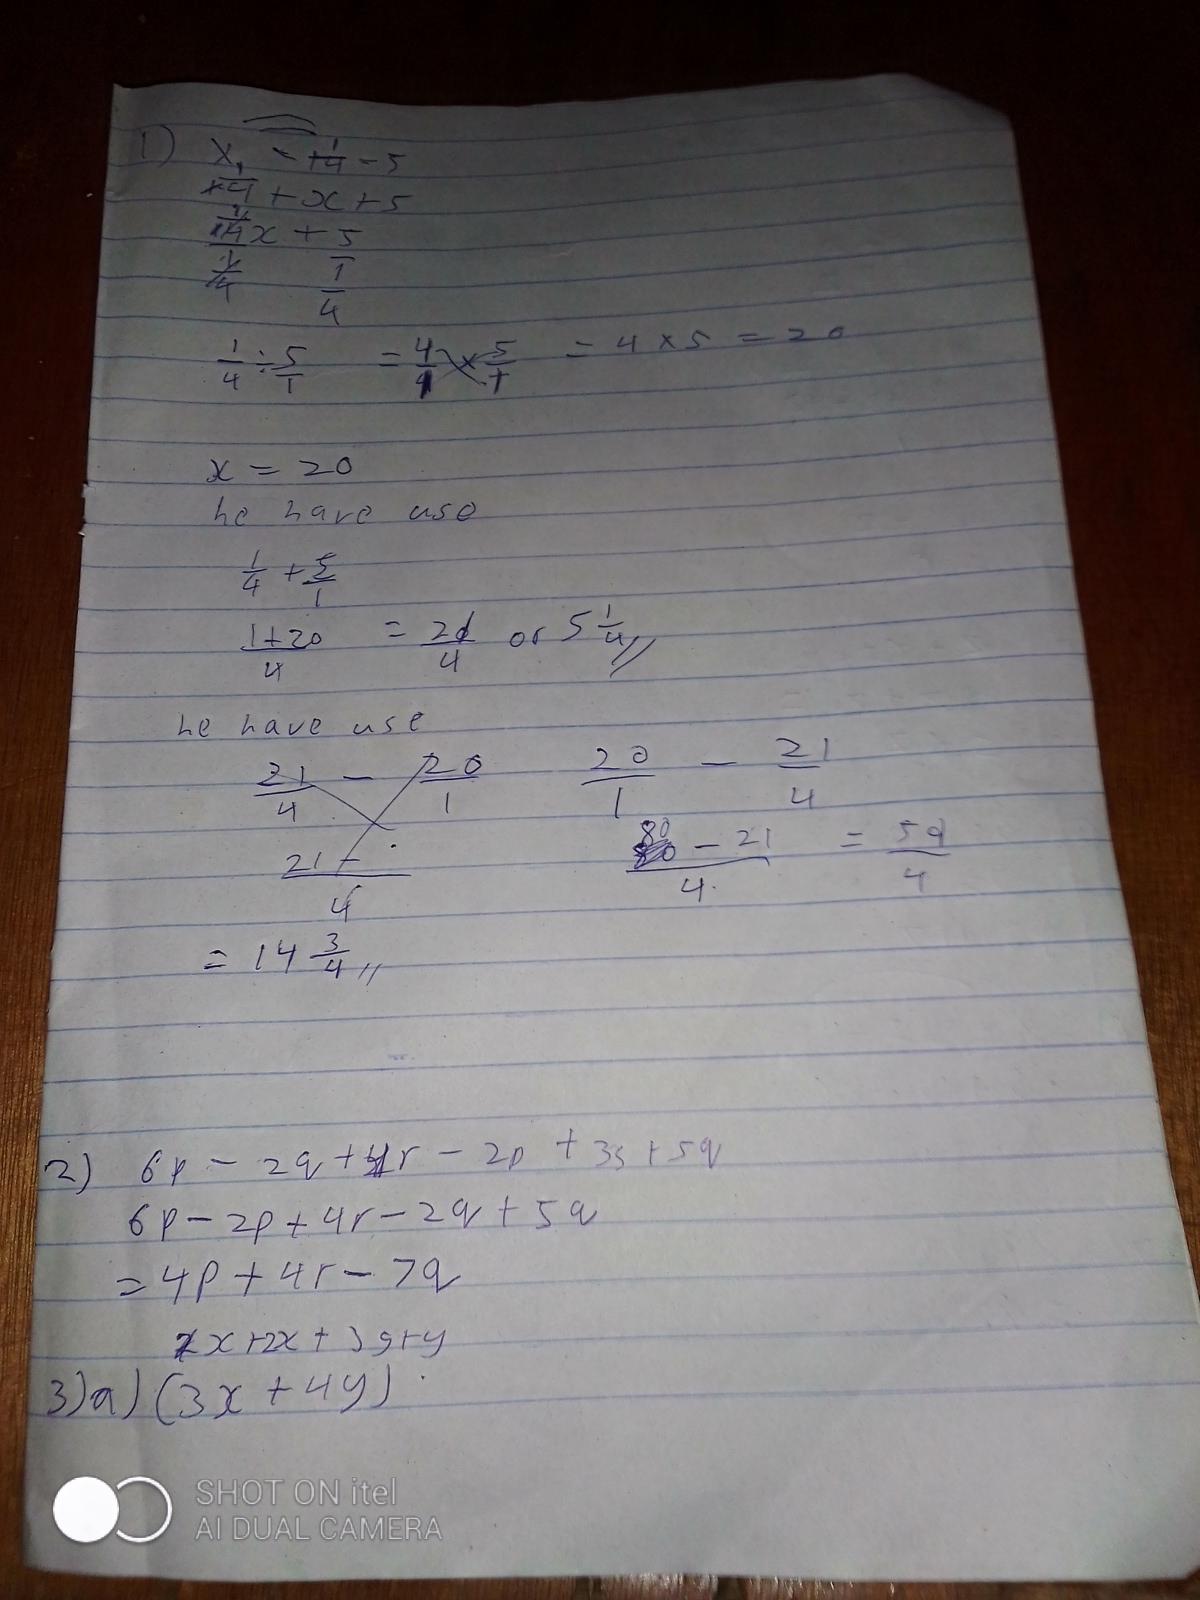 1) x - 1/4 - 5
1/4 + x + 5
1/4 x + 5
1/4 1/4
1/4 ÷ 5/1 = 4/1 × 5/1 = 4 × 5 = 20
x = 20
he have use
1/4 + 5/1
1+20/4 = 21/4 or 5 1/4 //
he have use
21/4 - 20/1 20/1 - 21/4
21 - /4 80 - 21/4 = 59/4
= 14 3/4 //
2) 6p - 2q + 4r - 2p + 3s + 5q
6p - 2p + 4r - 2q + 5q
= 4p + 4r - 7q
x + 2x + 3y + y
3) a) (3x + 4y)
SHOT ON itel
AI DUAL CAMERA